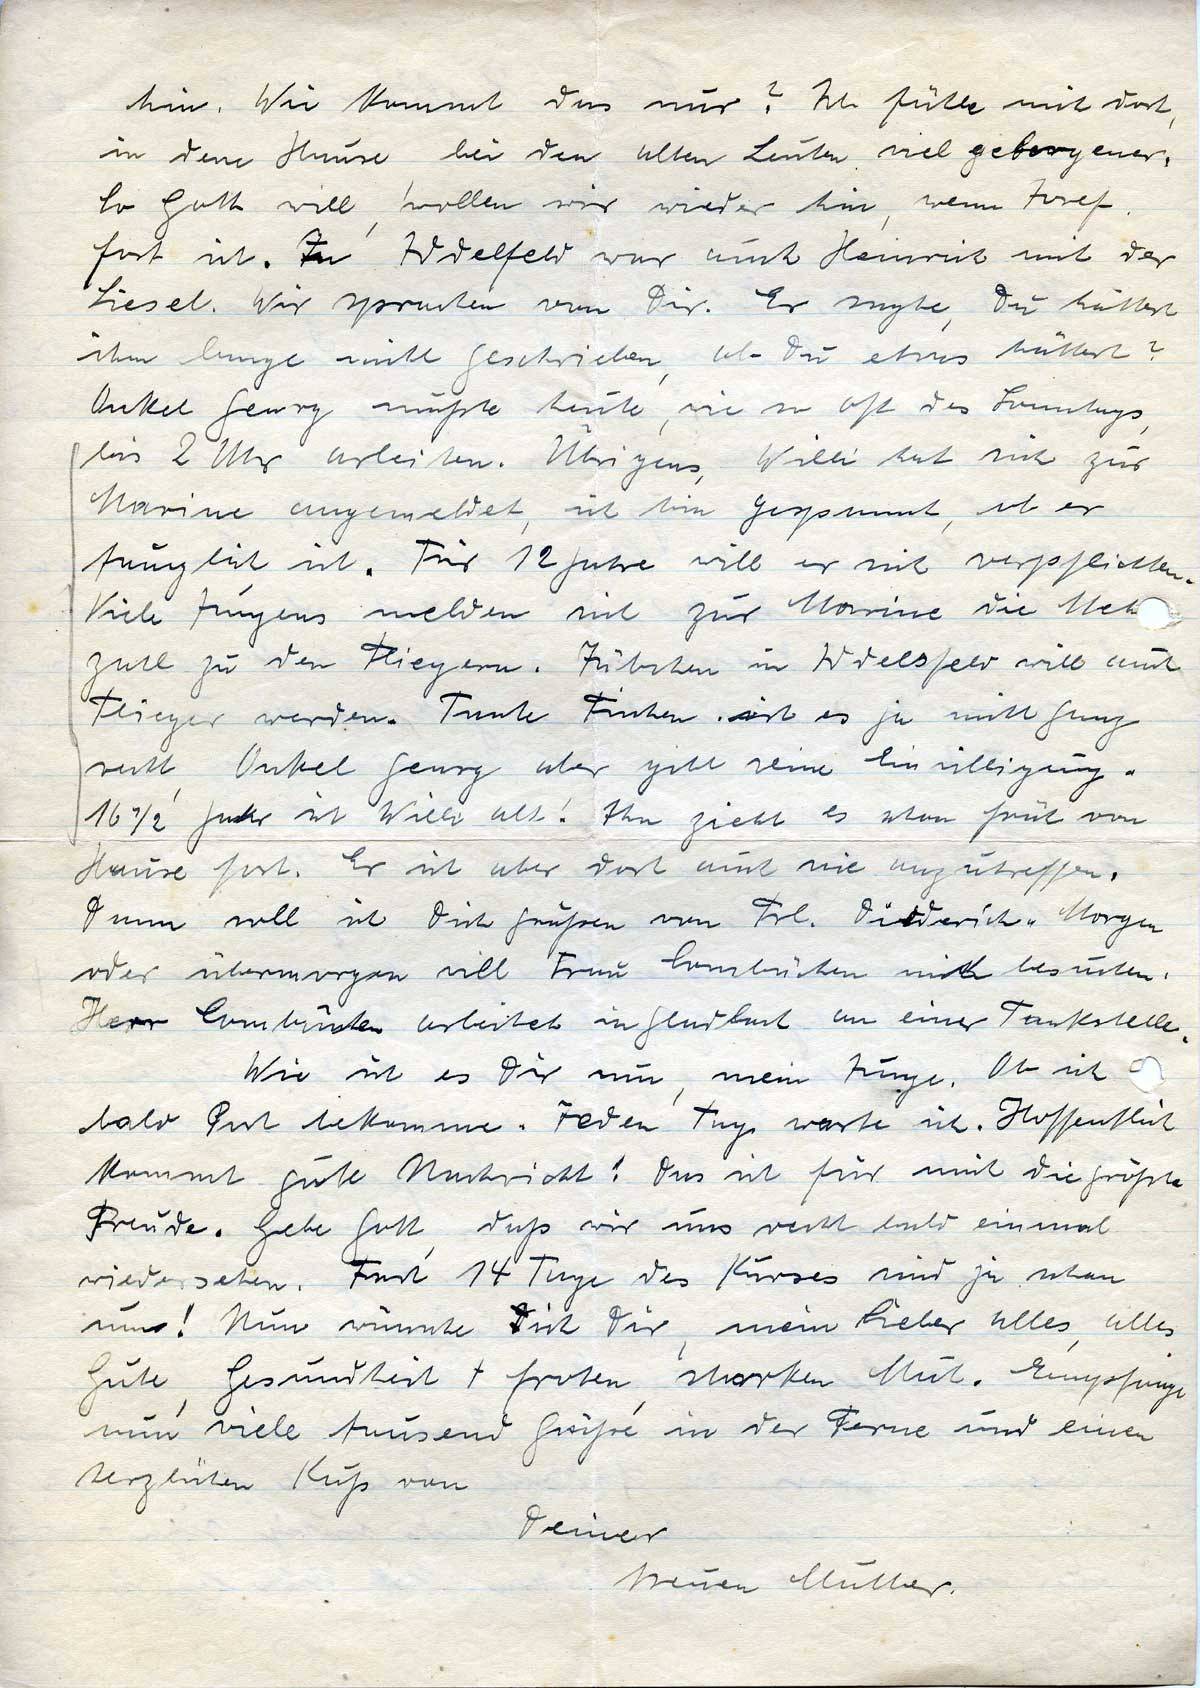 hin. Wie kommt das nur? Ich fühle mich dort,
in dem Hause bei den alten Leuten viel geborgener.
So Gott will, wollen wir wieder hin, wenn Josef
fort ist. In Iddelfeld war auch Heinrich mit der
Liesel. Wir sprachen von Dir. Er sagte, Du hättest
ihm lange nicht geschrieben, ob Du etwas hättest?
Onkel Georg mußte heute, wie so oft des Sonntags,
bis 2 Uhr arbeiten. Übrigens, Willi hat sich zur
Marine angemeldet, ich bin gespannt, ob er
tauglich ist. Für 12 Jahre will er sich verpflichten.
Viele Jungens melden sich zur Marine die Meh
zahl zu den Fliegern. Jübchen in Iddelsfeld will auch
Flieger werden. Tante Finchen ist es ja nicht ganz
recht, Onkel Georg aber gibt seine Einwilligung.
16 1/2 Jahr ist Willi alt! Ihn zieht es schon früh von
Hause fort. Er ist aber dort auch nie anzutreffen.
Dann soll ich Dich grüßen von Frl. Diederich. Morgen
oder übermorgen will Frau Combüchen mich besuchen.
Herr Combüchen arbeitet in Gladbach an einer Tankstelle.
Wie ist es Dir nun, mein Junge. Ob ich
bald Post bekomme. Jeden Tag warte ich. Hoffentlich
kommt gute Nachricht! Das ist für mich die größte
Freude. Gebe Gott, daß wir uns recht bald einmal
wiedersehen. Fast 14 Tage des Kurses sind ja schon
um! Nun wünsche Dich Dir, mein Lieber alles, alles
Gute, Gesundheit + frohen, starken Mut. Empfange
nun viele tausend Grüße in der Ferne und einen
herzlichen Kuß von
Deiner
treuen Mutter.